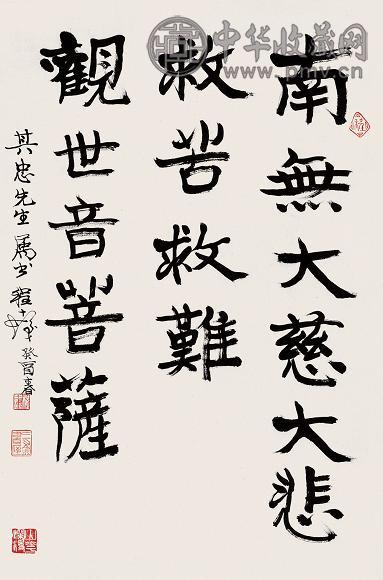 南無大慈大悲
救苦救難
觀世音菩薩
其忠先生属书 程十髮 癸酉春
中华收藏网
www.pmv.cn